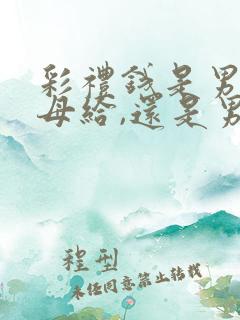 彩禮錢是男
母給,還是男
程型
未经同意禁止转载